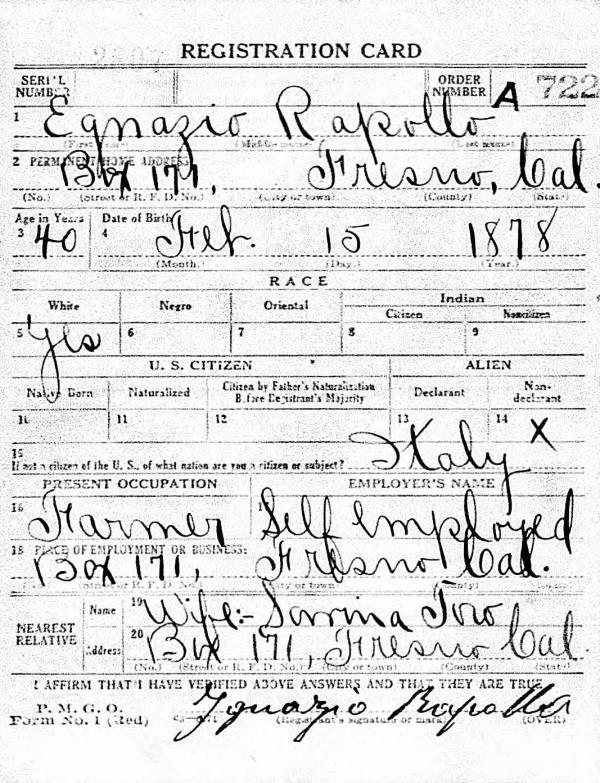 2807
REGISTRATION CARD
SERIAL NUMBER ORDER NUMBER A 722
1 Egnazio Rapollo
(First name) (Middle name) (Last name)
2 PERMANENT HOME ADDRESS:
Box 171, Fresno, Cal.
(No.) (Street or R. F. D. No.) (City or town) (County) (State)
Age in Years Date of Birth
3 40 4 Feb. 15 1878
(Month.) (Day.) (Year.)
RACE
White Negro Oriental Indian
Citizen Noncitizen
5 Yes 6 7 8 9
U. S. CITIZEN ALIEN
Native Born Naturalized Citizen by Father's Naturalization Before Registrant's Majority Declarant Non-declarant
10 11 12 13 14 X
15
If not a citizen of the U. S., of what nation are you a citizen or subject? Italy
PRESENT OCCUPATION EMPLOYER'S NAME
16 Farmer Self employed
18 PLACE OF EMPLOYMENT OR BUSINESS:
Box 171, Fresno Cal.
(No.) (Street or R. F. D. No.) (City or town) (County) (State)
NEAREST RELATIVE
Name 19 Wife:-
Address 20 Box 171, Fresno Cal.
(No.) (Street or R. F. D. No.) (City or town) (County) (State)
I AFFIRM THAT I HAVE VERIFIED ABOVE ANSWERS AND THAT THEY ARE TRUE
P. M. G. O.
Form No. 1 (Red) Ignazio Rapollo
(Registrant's signature or mark) (OVER)